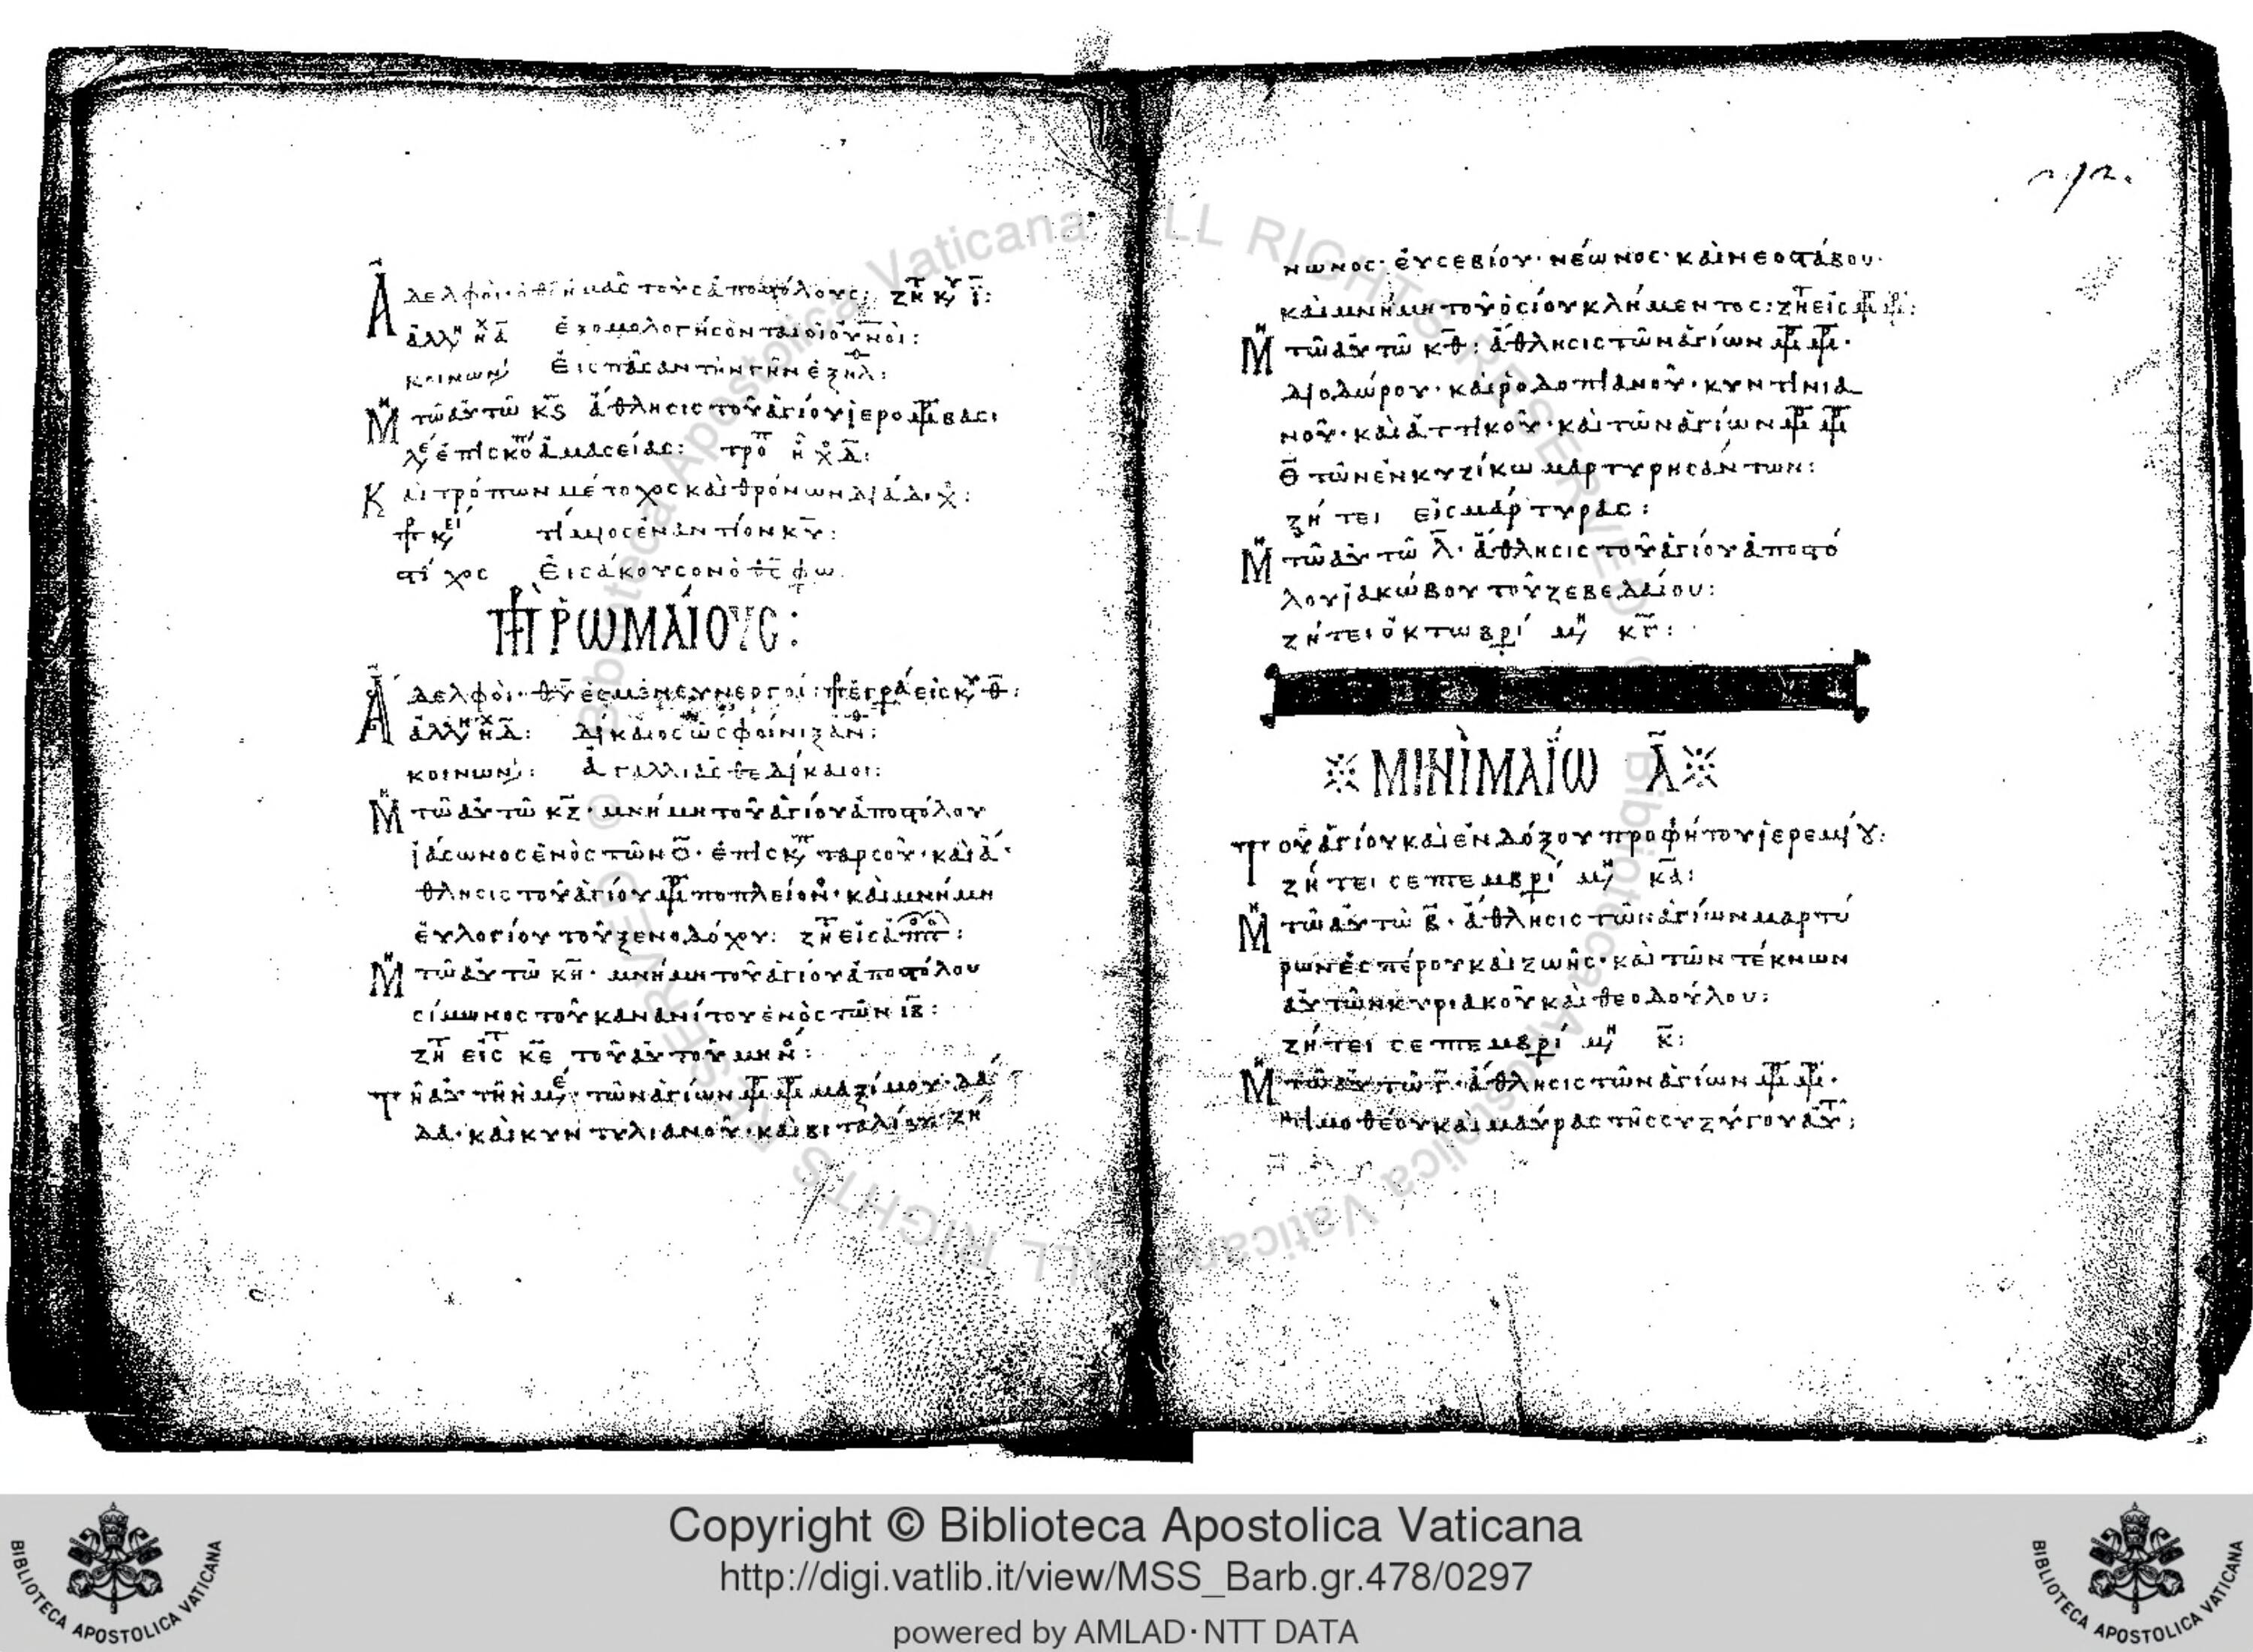 Ἀδελφοὶ· ὁ θ̅ς̅ ἡμᾶς τοὺς ἀποστόλους: ζητ κυ ι̅:
ἀλλη ἦχ α̅ ἐξομολογήσονται οἱ οὐνοὶ:
κοινων Εἰς πᾶσαν τὴν γῆν ἐξῆλθ:
Μη τῶ αὐτῶ κ̅ς̅ ἄθλησις τοῦ ἁγίου ἱερομρ βασι
λε ἐπισκόπ ἀμασείας: τροπ ἦχ δ̅:
Καὶ τρόπων μέτοχος καὶ θρόνων διάδοχο:
προκει τίμιος ἐναντίον κ̅υ̅:
στίχος Εἰσάκουσον ὁ θ̅ς̅ φω
πρ ῥωμαίους:
Ἀδελφοὶ· θ̅υ̅ ἐσμὲν συνεργοὶ: προεγρά εἰς κυ θ̅:
ἀλλη ἦχ δ̅: δίκαιος ὡς φοίνιξ ἀνθ:
κοινων: ἀγαλλιᾶσθε δίκαιοι:
Μη τῶ αὐτῶ κ̅ζ̅· μνήμη τοῦ ἁγίου ἀποστόλου
ἰάσωνος ἑνὸς τῶν ο̅· ἐπισκοπ ταρσοῦ· καὶ ἄ
θλησις τοῦ ἁγίου μρ ποπλείονο· καὶ μνήμη
εὐλογίου τοῦ ξενοδόχου: ζητ εἰς
Μη τῶ αὐτῶ κ̅η̅· μνήμη τοῦ ἁγίου ἀποστόλου
σίμωνος τοῦ κανανίτου ἑνὸς τῶν ι̅β̅:
ζητ εἰς κ̅ε̅ τοῦ αὐτοῦ μηνο:
τῆ αὐτῆ ἡμε· τῶν ἁγίων μρ μρ μαξίμου· δά
δα· καὶ κυντυλιανοῦ· καὶ βιταλίου· ζη
νωνος· εὐσεβίου· νέωνος· καὶ νεοστάβου·
καὶ μνήμη τοῦ ὁσίου κλήμεντος: ζητ εἰς μρ μρ:
Μη τῶ αὐτῶ κ̅θ̅: ἄθλησις τῶν ἁγίων μρ μρ·
διοδώρου· καὶ ῥοδοπιανοῦ· κυντινια
νοῦ· καὶ ἀττικοῦ· καὶ τῶν ἁγίων μρ μρ
θ̅ τῶν ἐν κυζίκω μαρτυρησάντων:
ζήτει εἰς μάρτυρας:
Μη τῶ αὐτῶ λ̅· ἄθλησις τοῦ ἁγίου ἀποστό
λου ἰακώβου τοῦ ζεβεδαίου:
ζήτει ὀκτωβρί μη κ̅γ̅:
ΜΗΝῚ ΜΑΪ́Ω Α̅
Τοῦ ἁγίου καὶ ἐνδόξου προφήτου ἱερεμίου:
ζήτει σεπτεμβρί μη κ̅α̅:
Μη τῶ αὐτῶ β̅· ἄθλησις τῶν ἁγίων μαρτύ
ρων ἑσπέρου καὶ ζωῆς· καὶ τῶν τέκνων
αὐτῶν κυριακοῦ καὶ θεοδούλου:
ζήτει σεπτεμβρί μη κ̅:
Μη τῶ αὐτῶ γ̅· ἄθλησις τῶν ἁγίων μρ μρ·
τιμοθέου καὶ μαύρας τῆς συζύγου αὐτ:
Copyright © Biblioteca Apostolica Vaticana
http://digi.vatlib.it/view/MSS_Barb.gr.478/0297
powered by AMLAD·NTT DATA
BIBLIOTECA APOSTOLICA VATICANA
BIBLIOTECA APOSTOLICA VATICANA